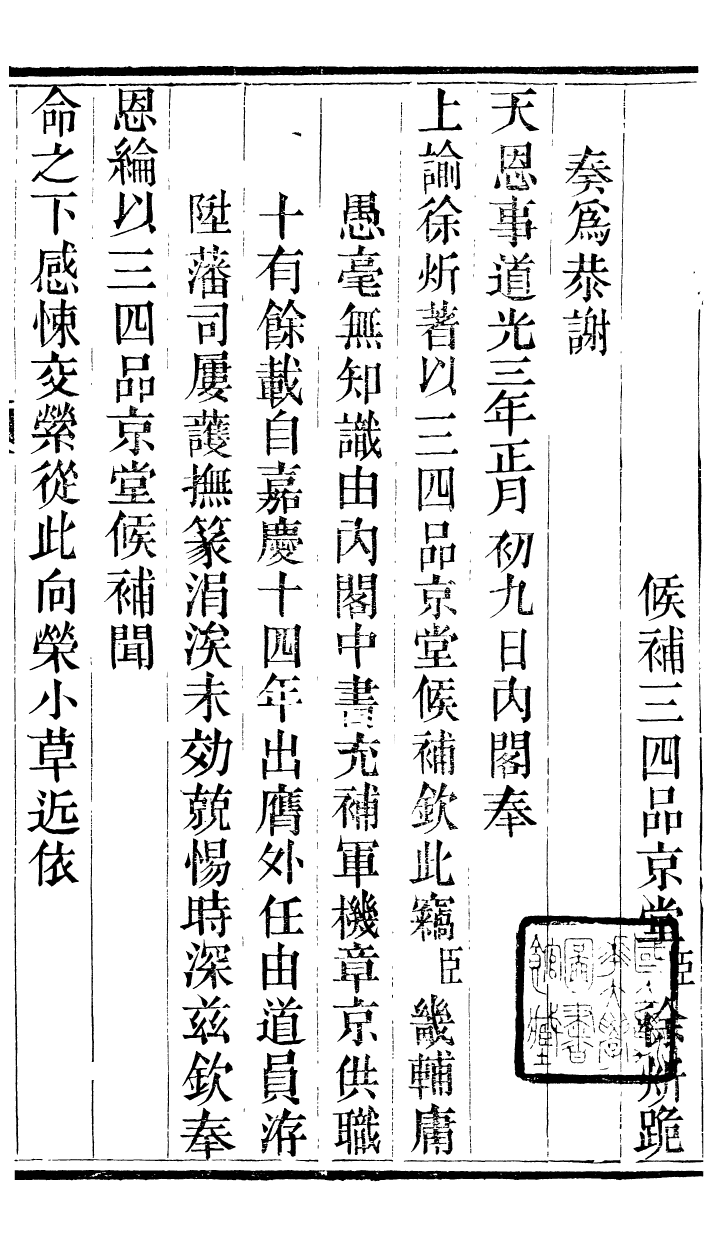 候補三四品京堂臣徐炘跪
奏爲恭謝
天恩事道光三年正月初九日內閣奉
上諭徐炘著以三四品京堂候補欽此竊臣畿輔庸
愚毫無知識由內閣中書充補軍機章京供職
十有餘載自嘉慶十四年出膺外任由道員洊
陞藩司屢護撫篆涓涘未効兢惕時深茲欽奉
恩綸以三四品京堂候補聞
命之下感悚交縈從此向榮小草近依